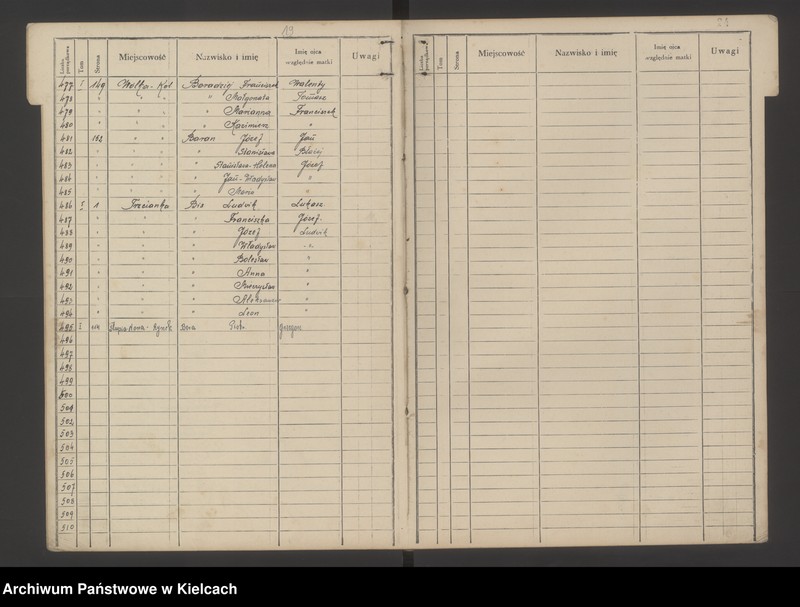 19
Liczba porządkowa Tom Strona Miejscowość Nazwisko i imię Imię ojca względnie matki Uwagi
477 I 149 Baradziej Franciszek Walenty
478 " " " " Małgorzata Tomasz
479 " " " " Marianna Franciszek
480 " " " " Kazimierz "
481 " 152 " " Baran Józef Jan
482 " " " " Stanisława Błażej
483 " " " " Stanisława-Helena Józef
484 " " " " Jan-Władysław "
485 " " " " Maria "
486 I 1 Trzcianka Bis Ludwik Łukasz
487 " " " Franciszka Józef
488 " " " Józef Ludwik
489 " " " Władysław "
490 " " " Bolesław "
491 " " " Anna "
492 " " " Mieczysław "
493 " " " Aleksander "
494 " " " Leon "
495 I Piotr Grzegorz
496
497
498
499
500
501
502
503
504
505
506
507
508
509
510
Liczba porządkowa Tom Strona Miejscowość Nazwisko i imię Imię ojca względnie matki Uwagi
Archiwum Państwowe w Kielcach